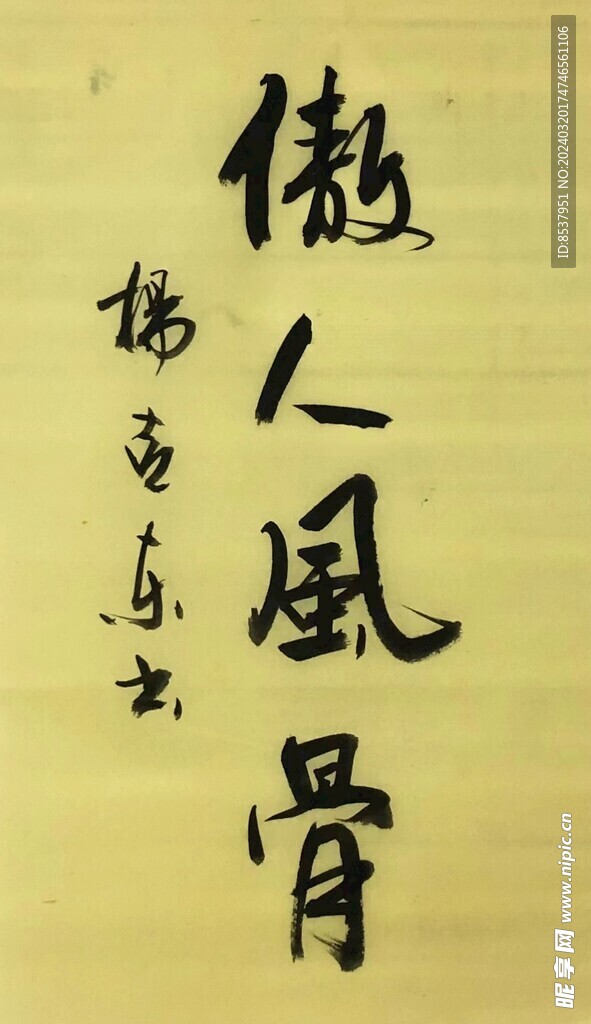 傲人風骨
楊吉东书
ID:8537951 NO:20240320174746561106
昵享网 www.nipic.cn